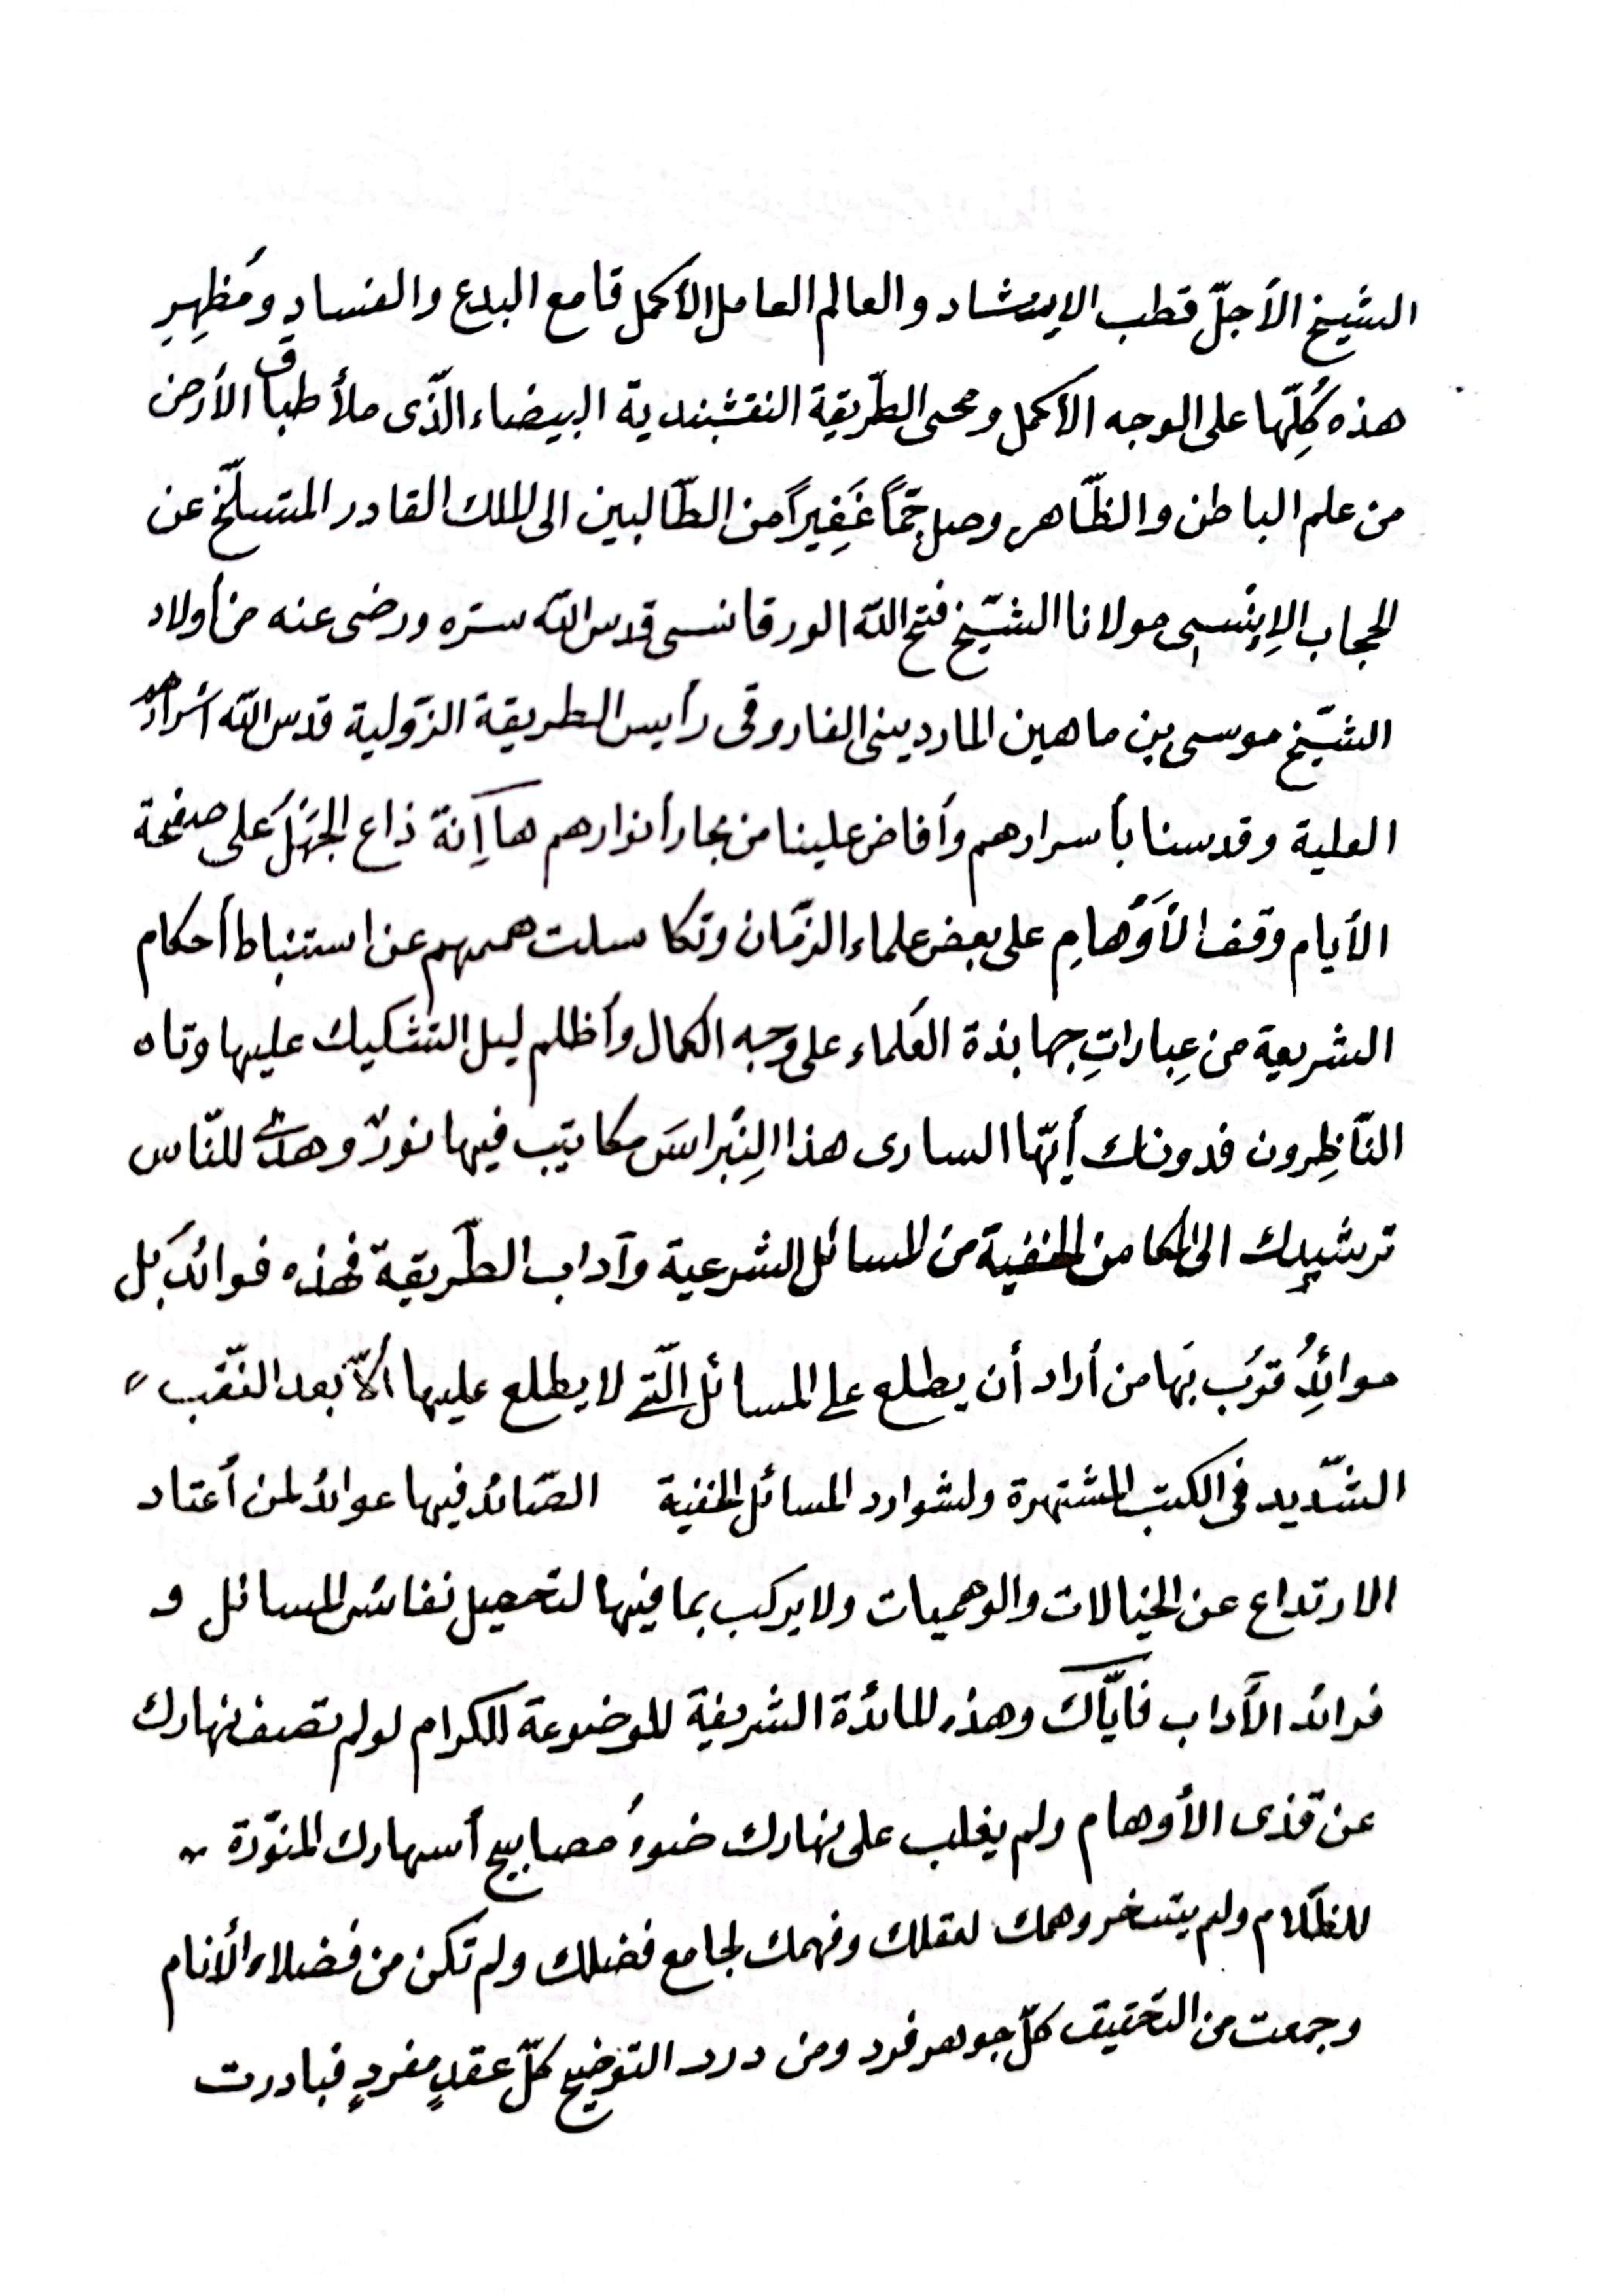 الشيخ الأجلّ قطب الإرشاد والعالم العامل الأكمل قامع البدع والفساد ومُظهِرِ
هذه كُلِّها على الوجه الأكمل ومحى الطّريقة النقشبندية البيضاء الّذى ملأ طباق الأرض
من علم الباطن والظّاهر وصل جمّاً غَفِيراً من الطّالبين الى الملك القادر المتسلّخ عن
الحجاب الإنسى مولانا الشّيخ فتح الله الورقانسى قدس الله سرّه ورضى عنه من أولاد
الشّيخ موسى بن ماهين الماردينى الفاروقى رأيس الطريقة الزّولية قدس الله أسرارهم
العلية وقدسنا بأسرارهم وأفاض علينا من بحار أنوارهم ها إنّه ذاع الجَهْلُ على صفحة
الأيام وقف الأَوْهامِ على بعض علماء الزّمان وتكاسلت هممهم عن استنباط أحكام
الشريعة من عِباراتِ جهابذة العُلماء على وجه الكمال وأظلم ليل التشكيك عليها وتاه
النّاظِرون فدونك أيّها السارى هذا النِبْراسَ مكاتيب فيها نورٌ وهدًى للنّاس
ترشيدك الى المكامن الخفية من المسائل الشرعية وآداب الطّريقة فهذه فوائدُ بل
موائِدُ قرّب بَها من أراد أن يطلع على المسائل الّتى لا يطلع عليها ألاّ بعد النّقب
الشّديد فى الكتب المشتهرة ولشوارد المسائل الخفية الصّائد فيها عوائد لمن أعتاد
الارتداع عن الخيالات والوهميات ولا يركب بما فيها لتحصيل نفائس المسائل و
فرائد الآداب فايّاك وهذه المائدة الشريفة الموضوعة للكرام لو لم تصف نهارك
عن قذى الأوهام ولم يغلب على نهارك ضوءُ مصابيح أسهارك المنوّرة
للظّلام ولم يتسخر وهمك لعقلك وفهمك لجامع فضلك ولم تكن من فضلاء الأنام
وجمعت من التحقيق كلّ جوهر فرد ومن درر التوضيح كلّ عقدٍ مفردٍ فبادرت